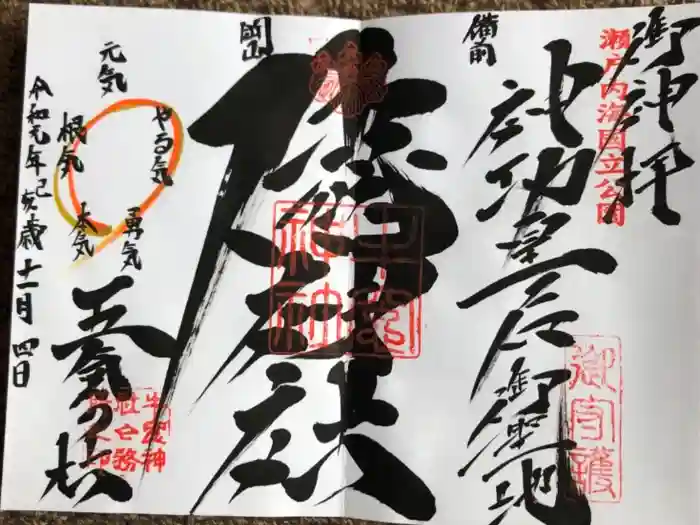 御神拝
瀬戸内海国立公園
備前
神功皇后御聖地
御守護
岡山
牛窓神社
牛窓
神社
元気
やる気
根気
勇気
本気
五気の杜
牛窓神
社社務
所之印
令和元年己亥歳十一月四日